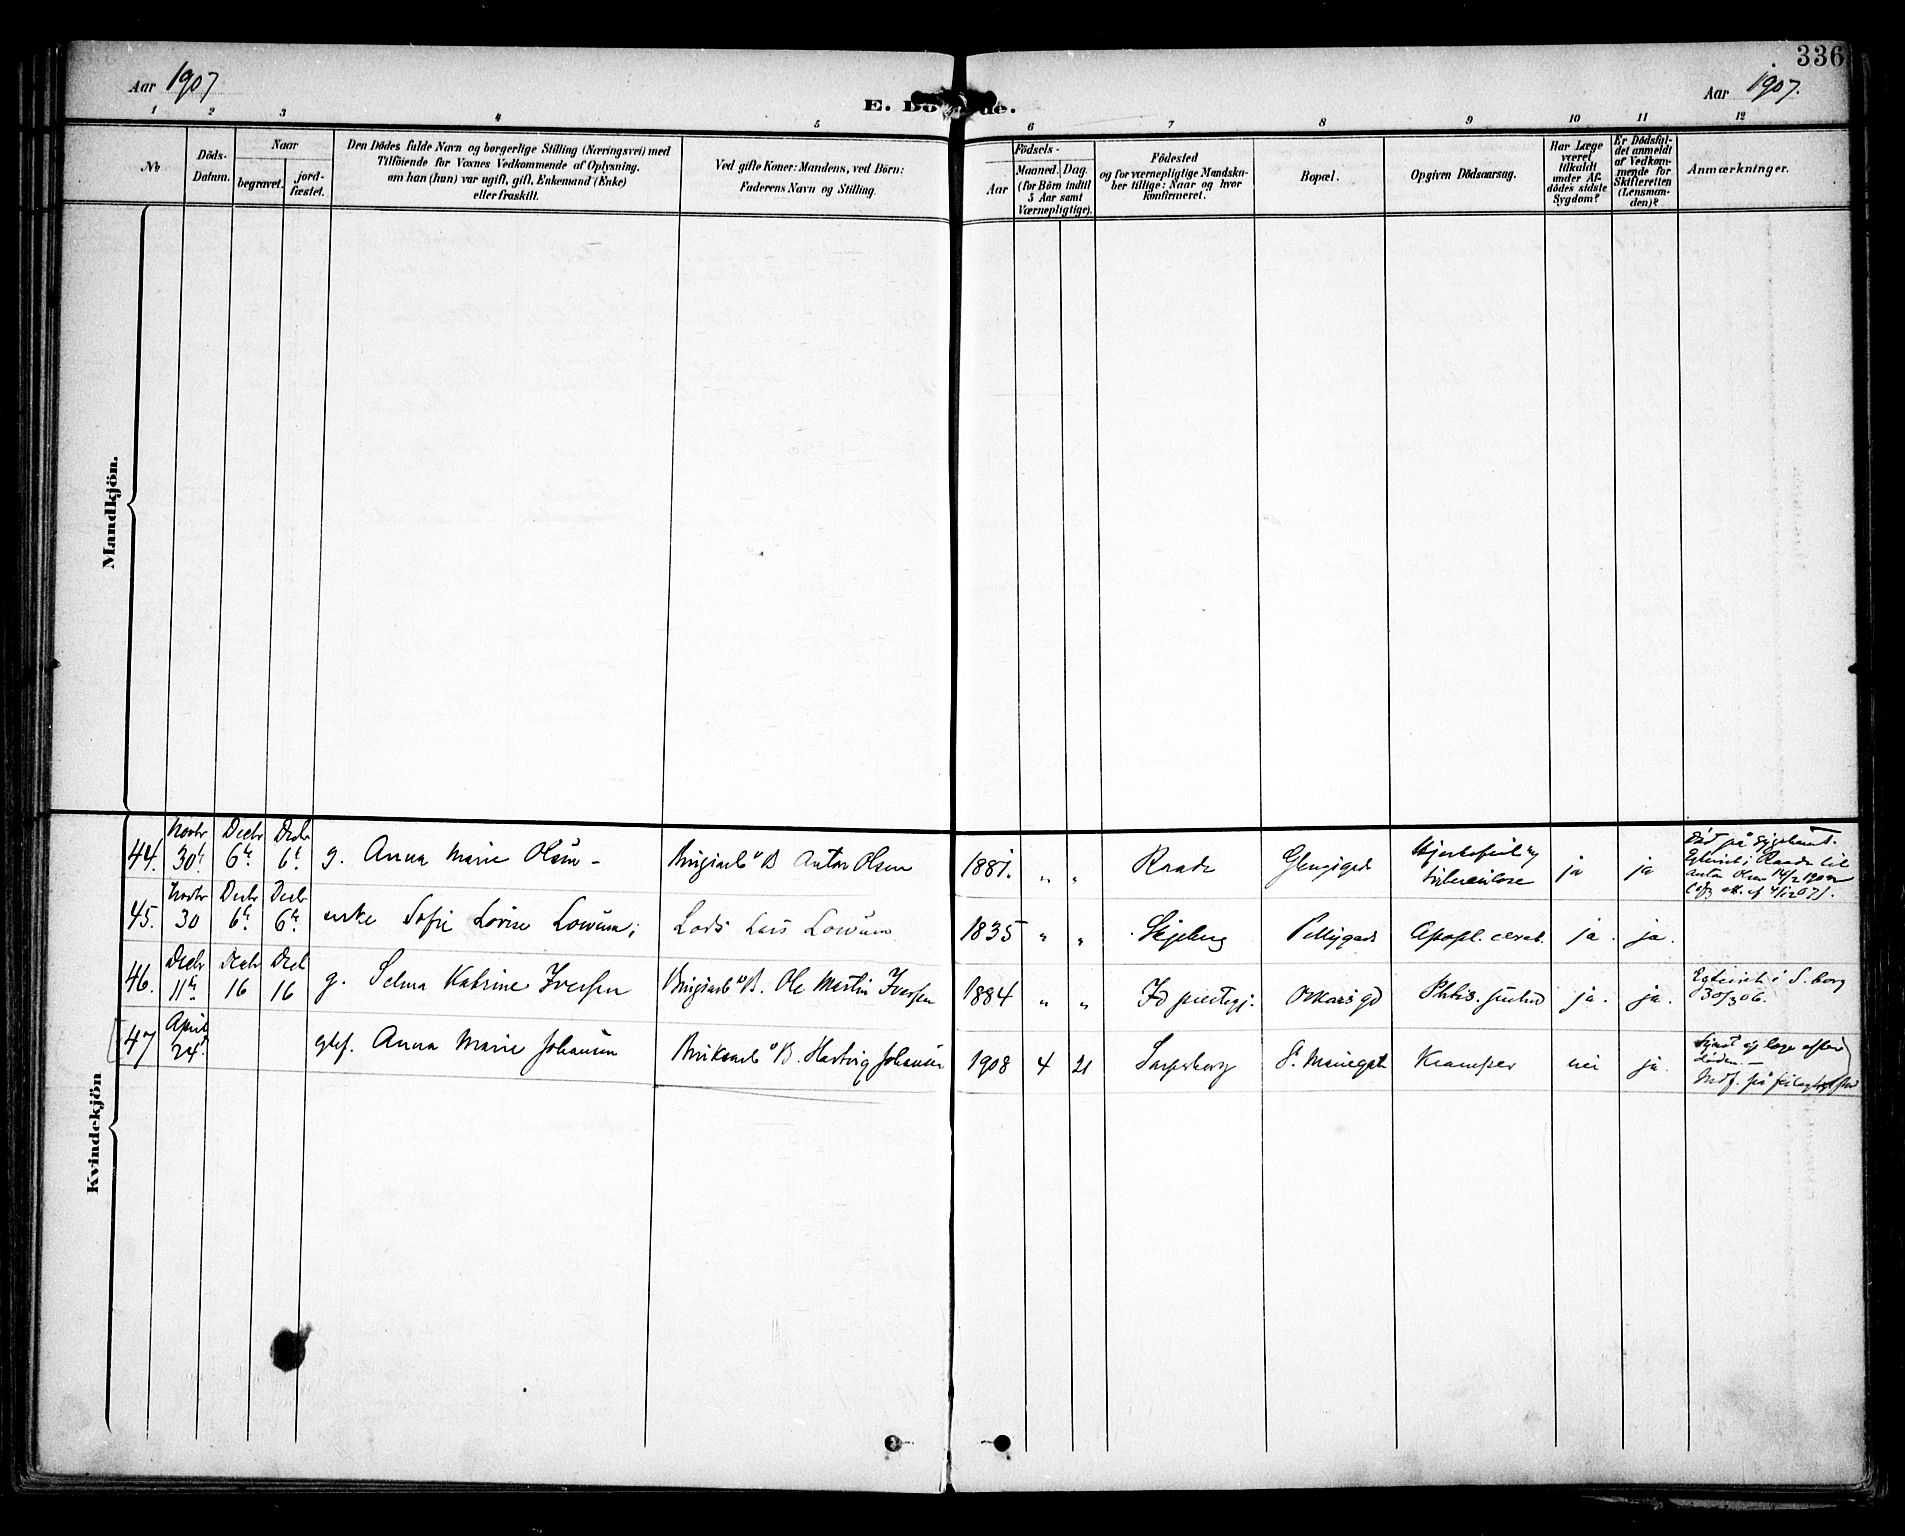 336
Aar 1907
Aar 1907.
E. Dö de.
1 2 3 4 5 6 7 8 9 10 11 12
No
Döds-
Datum.
Naar
begravet.
jord-
fæstet.
Den Dödes fulde Navn og borgerlige Stilling (Næringsvei) med
Tilföiende for Voxnes Vedkommende af Oplysning,
om han (hun) var ugift, gift, Enkemand (Enke)
eller fraskilt.
Ved gifte Koner: Mandens, ved Börn:
Faderens Navn og Stilling.
Födsels-
Aar
Maaned. Dag.
(for Börn indtil
5 Aar samt
Værnepligtige).
Födested
og for værnepligtige Mandska-
ber tillige: Naar og hvor
konfirmeret.
Bopæl.
Opgiven Dödsaarsag.
Har Læge
været
tilkaldt
under Af-
dödes sidste
Sygdom?
Er Dödsfal-
det anmeldt
af Vedkom-
mende for
Skifteretten
(Lensman-
den)?
Anmærkninger.
Mandkjön.
Kvindekjön
44. Novbr 30 Decbr 6 Decbr 6 g. Anna Marie Olsen - Anton Olsen 1881. " " Raade Glengsgd Hjertefeil og tuberculose ja ja
Død på Sygehuset.
Egteviet i Raade til
Anton Olsen
45. Novbr 30 Decbr 6 Decbr 6 enke Sofie Lovise Lowum; Lods Lars Lowum 1835 " " Skjeberg Pellygd Apopl. cereb. ja. ja.
46. Decbr 11 Decbr 16 Decbr 16 g. Selma Katrine Iversen Ole Martin Iversen 1884 " " Id prestegj. Oskars gd Phtis. pulm ja. ja.
Egteviet i S.borg
30/3 06.
47 April 24 Anna Marie Johansen Hartvig Johansen 1908 4 21 Sarpsborg St. Mariegate Kramper nei ja.